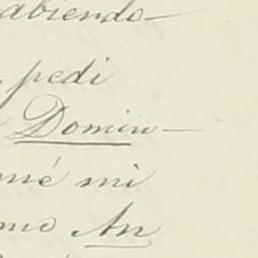 abiendo—
pedi
Domin—
mé mi
mo An